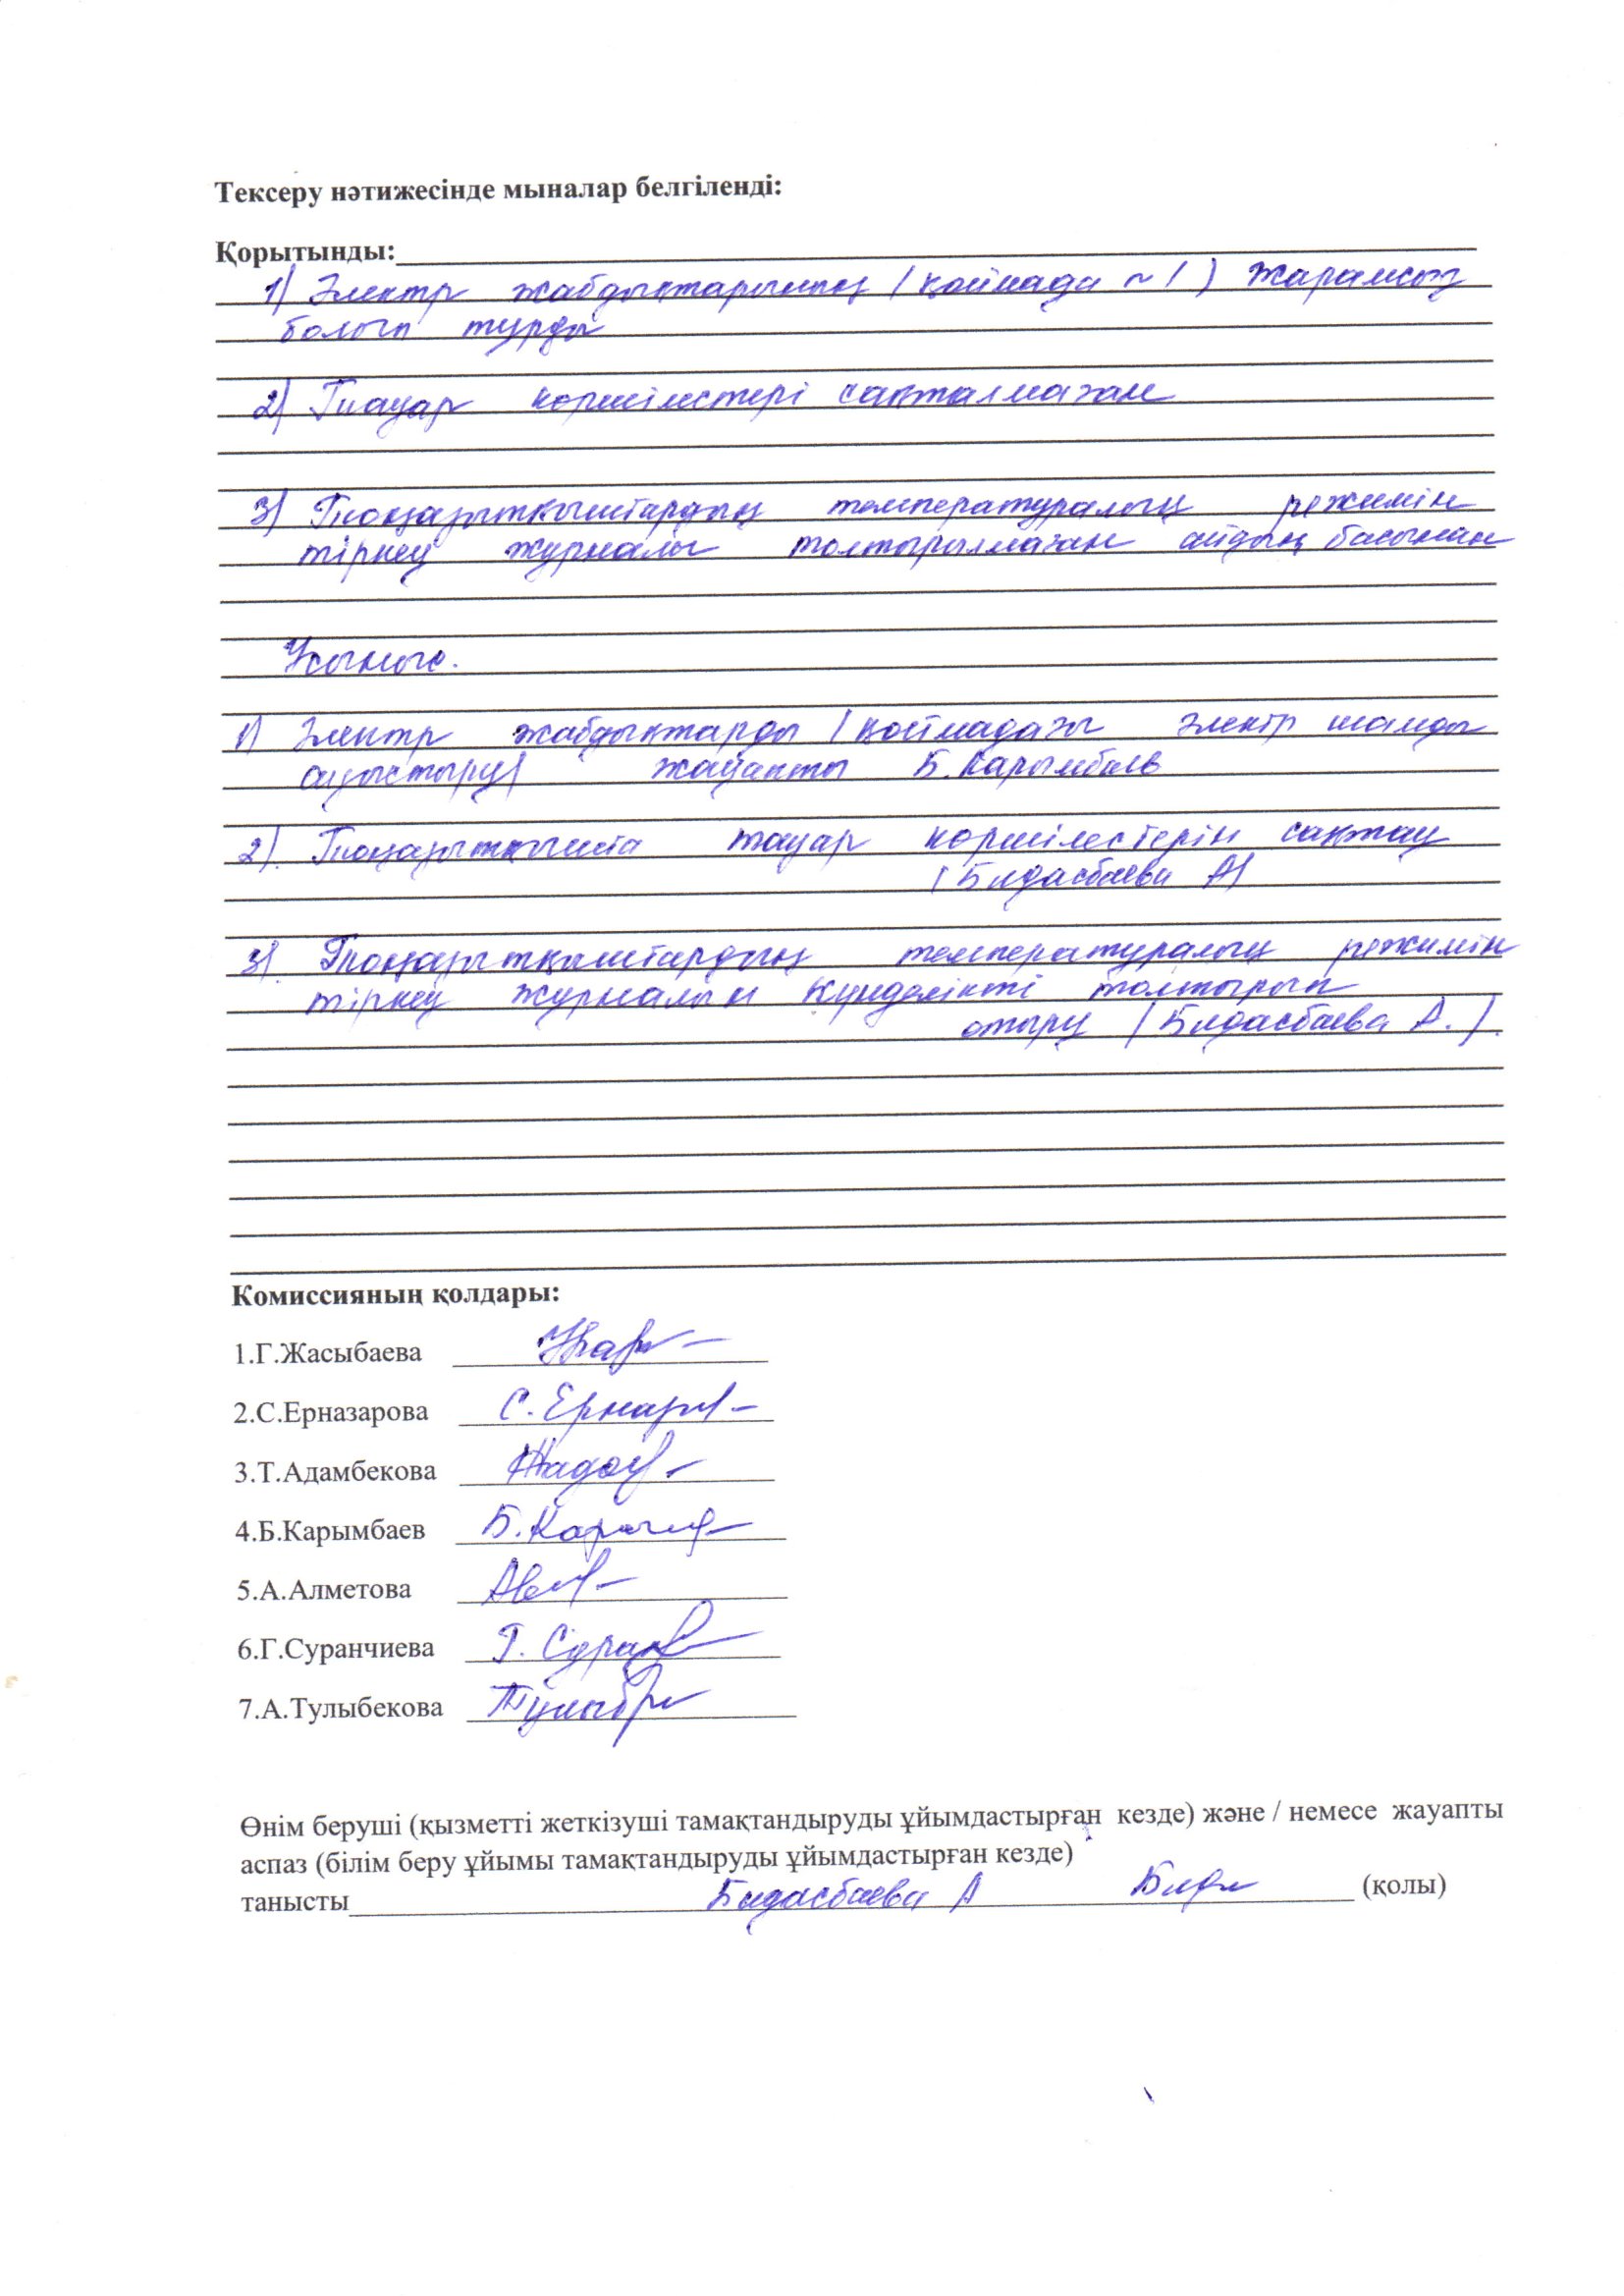 Тексеру нәтижесінде мыналар белгіленді:
Қорытынды:
1) Электр жабдықтарының (қоймада ~ 1) жарамсыз
болып тұрды
2) Тауар көршілестері сақталмаған
3) Тоңазытқыштардың температуралық режимін
тіркеу журналы толтырылмаған айдың басынан
Ұсыныс.
1) Электр жабдықтарды (қоймадағы электр шамды
ауыстыру) жауапты Б.Карымбаев
2). Тоңазытқышта тауар көршілестерін сақтау
(Бидасбаева А)
3). Тоңазытқыштардың температуралық режимін
тіркеу журналын күнделікті толтырып
отыру (Бидасбаева А.).
Комиссияның қолдары:
1.Г.Жасыбаева
2.С.Ерназарова
3.Т.Адамбекова
4.Б.Карымбаев
5.А.Алметова
6.Г.Суранчиева
7.А.Тулыбекова
Өнім беруші (қызметті жеткізуші тамақтандыруды ұйымдастырған кезде) және / немесе жауапты
аспаз (білім беру ұйымы тамақтандыруды ұйымдастырған кезде)
танысты Бидасбаева А (қолы)